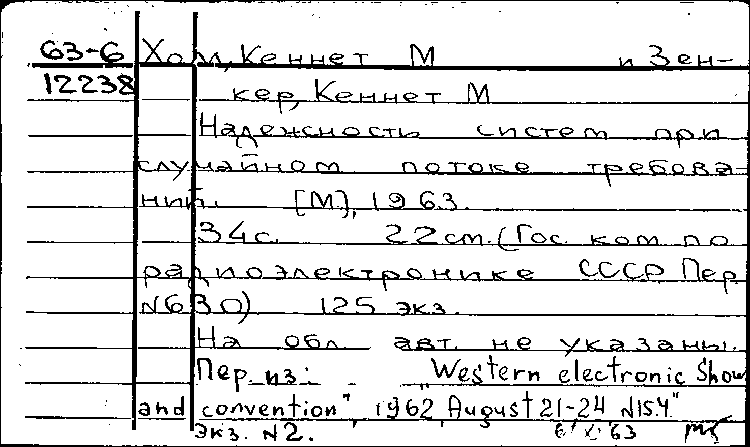 63-6 Холл, Кеннет М и Зен-
12238 кер, Кеннет М
Надежность систем при
случайном потоке требова-
ний. [М], 1963.
34с. 22см. (Гос. ком по
радиоэлектронике СССР Пер
№630) 125 экз.
На обл. авт. не указаны.
Пер из: "Western electronic Show
and convention", 1962, August 21-24 №15.4."
Экз. №2. 6/X/63